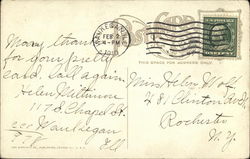 Many thanks
for your pretty
card. Call again.
Helen
117 S. Chapel St.
Waukegan
Ill
FEB 2
4-PM
THIS SPACE FOR ADDRESS ONLY
Miss Helen
481 Clinton Ave S
Rochester
N. Y.